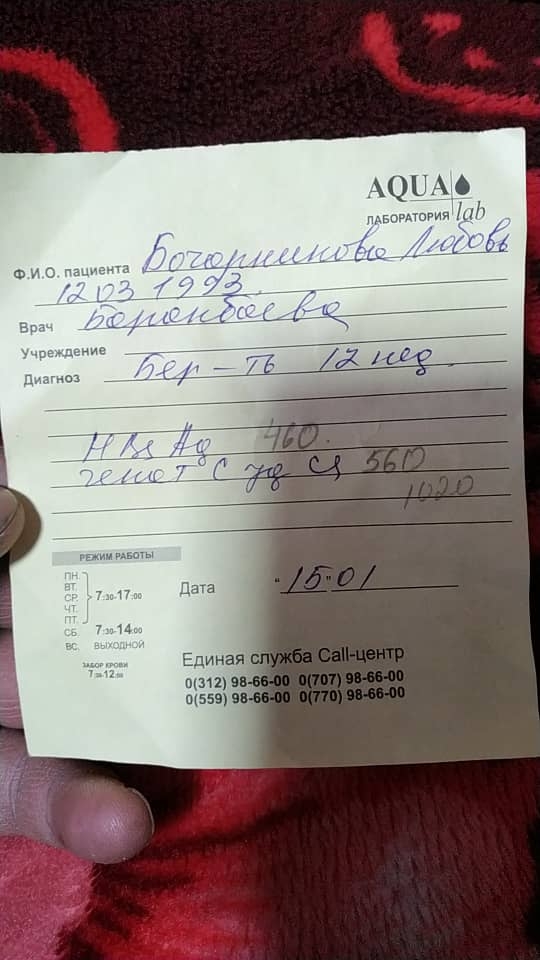 AQUA
ЛАБОРАТОРИЯ lab
Ф.И.О. пациента Бочарникова Любовь
12 03 1993.
Врач Баранбаева
Учреждение
Диагноз Бер-ть 12 нед.
HBs Ag 460.
гепат С 560
1020
РЕЖИМ РАБОТЫ
ПН.
ВТ.
СР. 7:30-17:00
ЧТ.
ПТ.
СБ. 7:30-14:00
ВС. ВЫХОДНОЙ
ЗАБОР КРОВИ
7:30-12:00
Дата "15" 01
Единая служба Call-центр
0(312) 98-66-00 0(707) 98-66-00
0(559) 98-66-00 0(770) 98-66-00